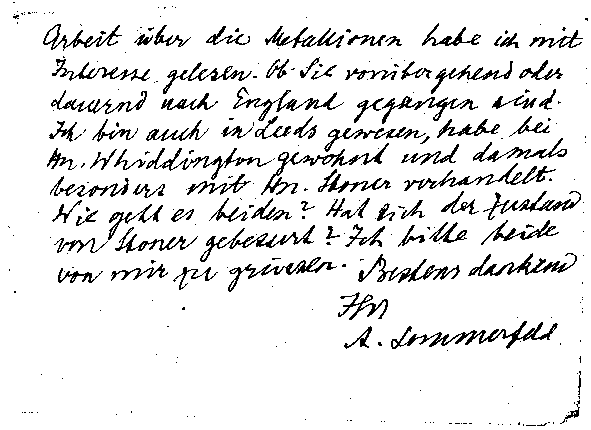 Arbeit über die Metallionen habe ich mit
Interesse gelesen. Ob Sie vorübergehend oder
dauernd nach England gegangen sind.
Ich bin auch in Leeds gewesen, habe bei
Hn. Whiddington gewohnt und damals
besonders mit Hn. Stoner verhandelt.
Wie geht es beiden? Hat sich der Zustand
von Stoner gebessert? Ich bitte beide
von mir zu grüssen. Bestens dankend
Ihr
A. Sommerfeld